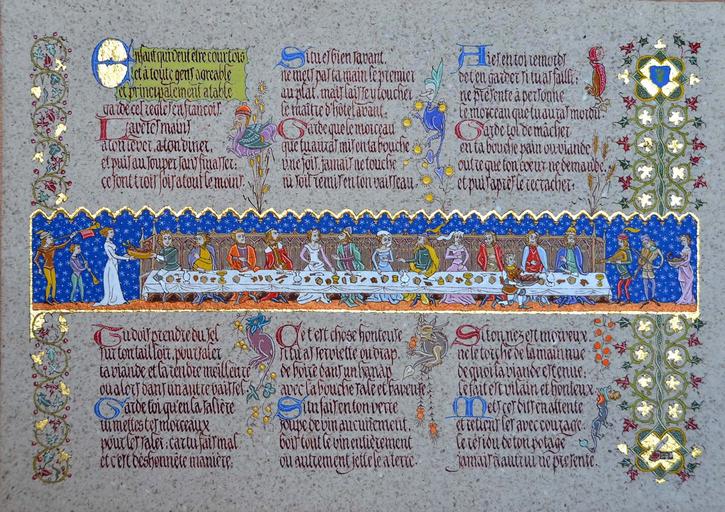 Enfant qui veut être courtois
et à toute gens agreable
et principalement a table
garde ces regles en francois.
Lave tes mains
a ton lever, a ton diner,
et puis au souper sans finasser;
ce sont trois fois a tout le moins.
Si tu es bien savant,
ne mets pas ta main le premier
au plat, mais laisse y toucher
le maître d'hôtel avant.
Garde que le morceau
que tu auras mis en ta bouche
une fois, jamais ne touche
ni soit remis en ton vaisseau.
Aies en toi remords
de t'en garder si tu as failli;
ne présente à personne
le morceau que tu auras mordu.
Garde toi de mâcher
en ta bouche pain ou viande
outre que ton coeur ne demande,
et puis après le recracher.
Tu dois prendre du sel
sur ton tailloir, pour saler
ta viande et la rendre meilleure
ou alors dans un autre vaissel.
Garde toi, qu'en la salière
tu mettes tes morceaux
pour les saler; car tu fais mal
et c'est deshonnête manière.
Ce t'est chose honteuse
si tu as serviette ou drap,
de boire dans un hanap
avec la bouche sale et baveuse.
Si tu fais en ton verre
soupe de vin aucunement,
bois tout le vin entièrement
ou autrement jette le a terre.
Si ton nez est morveux
ne le torche de la main nue
de quoi la viande est tenue;
le fait est vilain et honteux.
Mets ces dits en attente
et retiens les avec courage.
le résidu de ton potage
jamais a autrui ne presente.